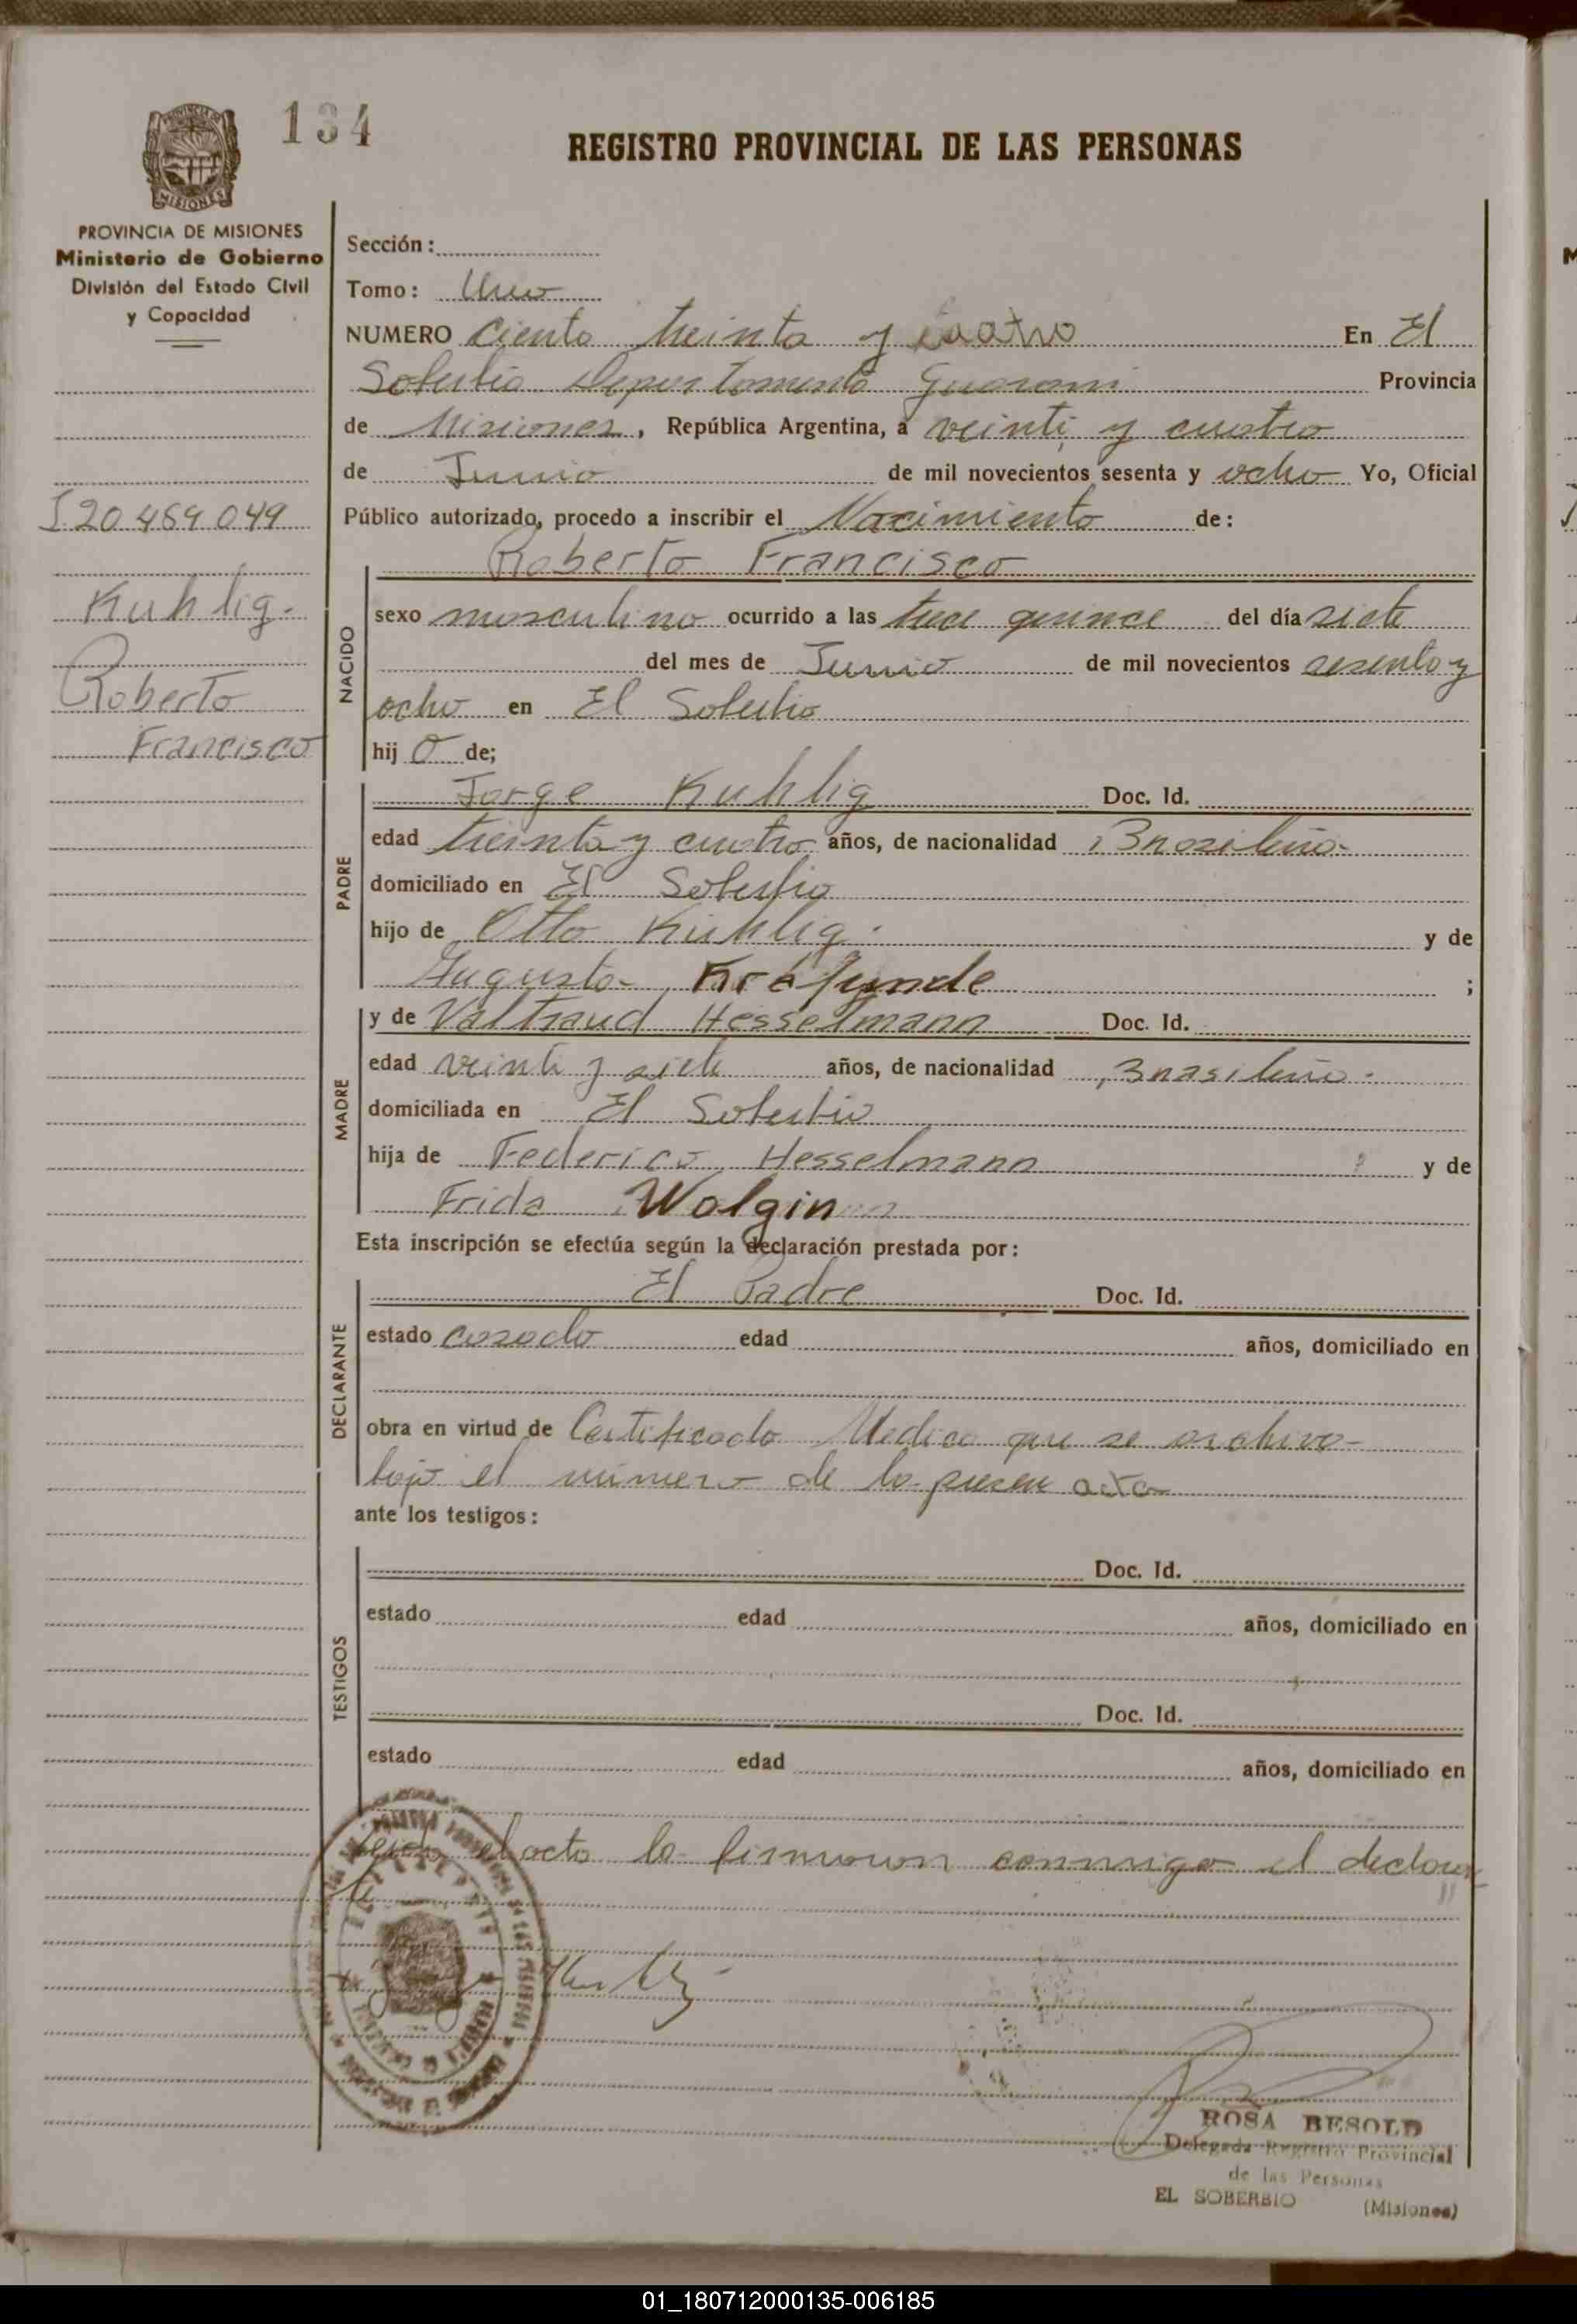 134
REGISTRO PROVINCIAL DE LAS PERSONAS
PROVINCIA DE MISIONES
Ministerio de Gobierno
División del Estado Civil
y Capacidad
I 20 459 049
Kuhlig.
Roberto
Francisco
Sección:
Tomo: Uno
NUMERO Ciento treinta y cuatro En El
Soberbio Departamento Guarani Provincia
de Misiones, República Argentina, a veinti y cuatro
de Junio de mil novecientos sesenta y ocho Yo, Oficial
Público autorizado, procedo a inscribir el Nacimiento de:
Roberto Francisco
NACIDO
sexo masculino ocurrido a las trece quince del día siete
del mes de Junio de mil novecientos sesenta y
ocho en El Soberbio
hij o de;
PADRE
Jorge Kuhlig Doc. Id.
edad treinta y cuatro años, de nacionalidad Brasileña-
domiciliado en El Soberbio
hijo de Otto Kuhlig. y de
Augusta- Krefunde ;
MADRE
y de Valtraud Hesselmann Doc. Id.
edad veinti y siete años, de nacionalidad Brasileña.
domiciliada en El Soberbio
hija de Federico Hesselmann y de
Frida Wolgin
Esta inscripción se efectúa según la declaración prestada por:
DECLARANTE
El Padre Doc. Id.
estado casado edad años, domiciliado en
obra en virtud de Certificado Medico que se archiva-
bajo el número de la presen acta
ante los testigos:
TESTIGOS
Doc. Id.
estado edad años, domiciliado en
Doc. Id.
estado edad años, domiciliado en
el acta la firmaron conmigo el declaran
te
ROSA BESOLD
Delegada Registro Provincial
de las Personas
EL SOBERBIO (Misiones)
01_180712000135-006185